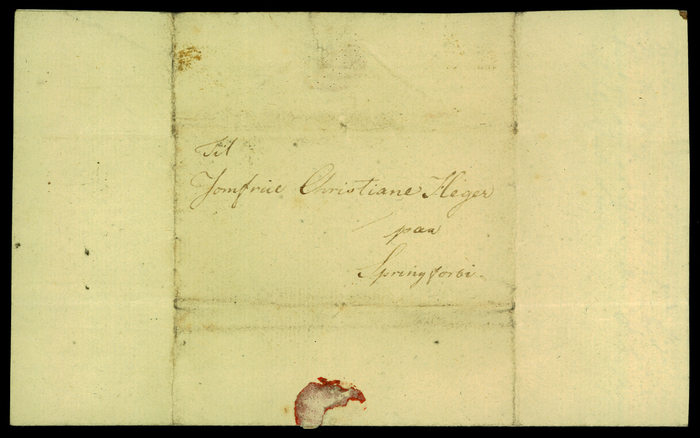 Til
Jomfrue Christiane Heger
paa
Springforbi.